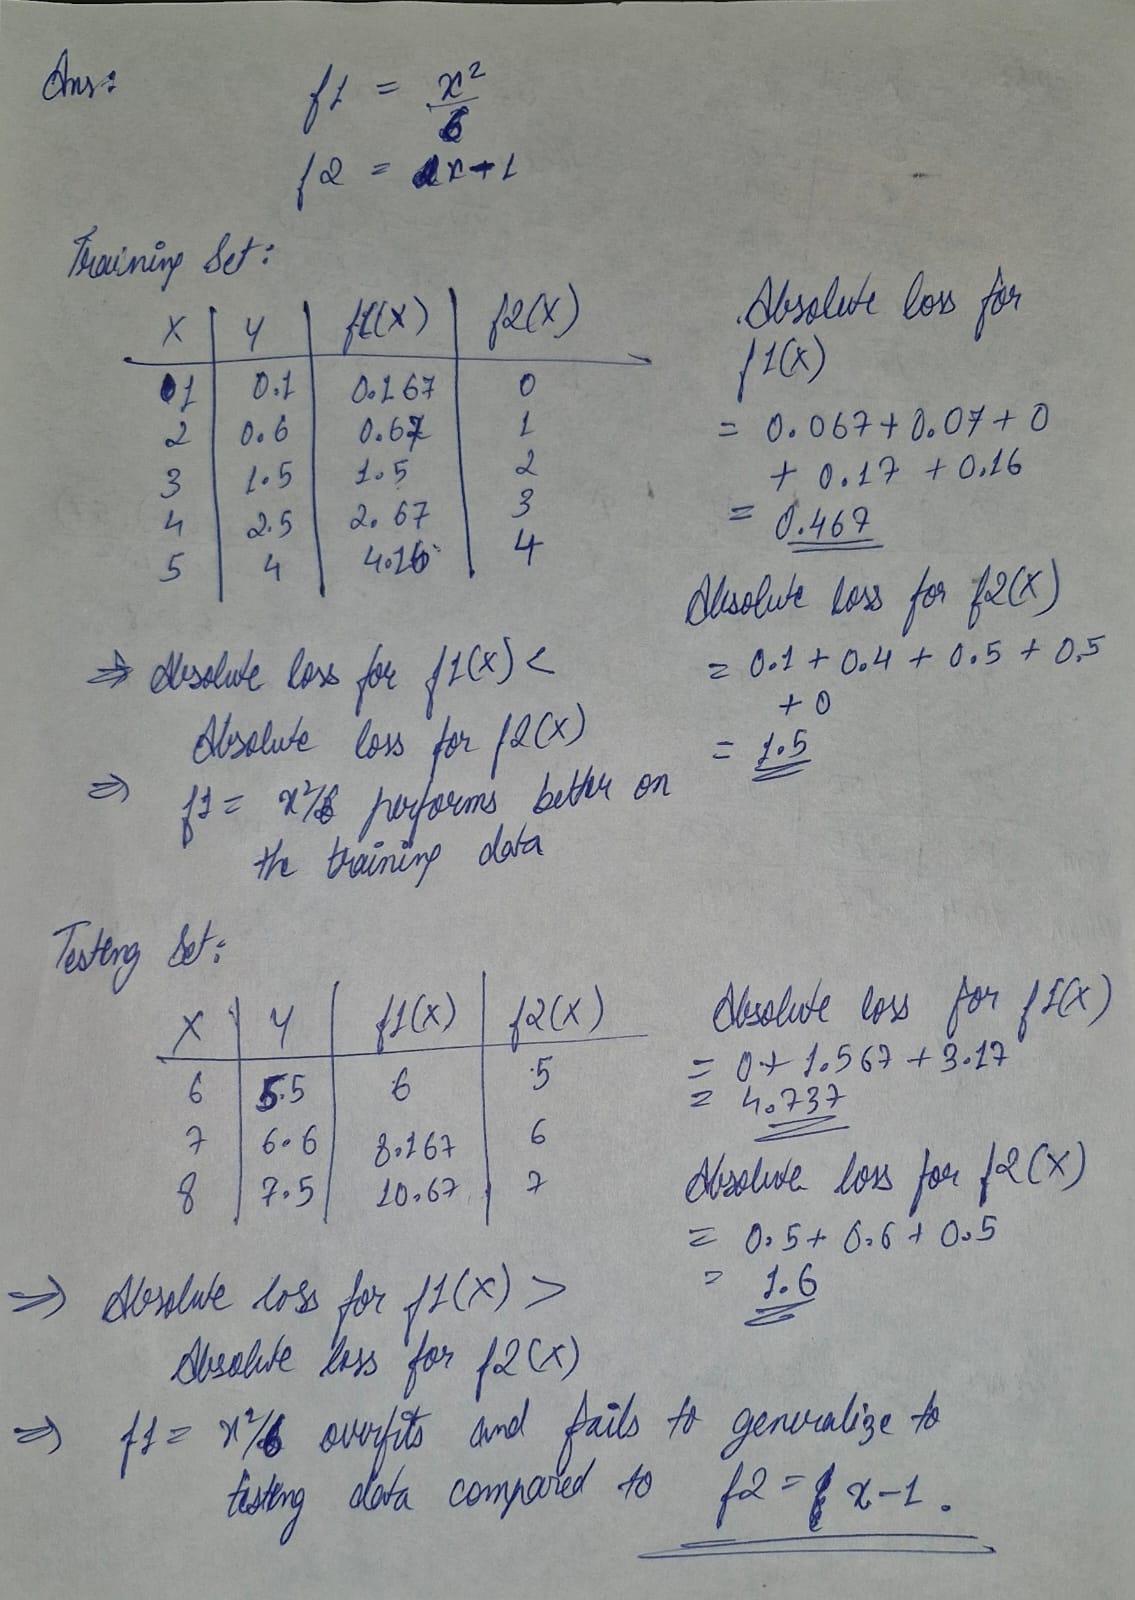 Ans:
f1 = x²/6
f2 = x-1
Training Set:
X | Y | f1(X) | f2(X)
1 | 0.1 | 0.167 | 0
2 | 0.6 | 0.67 | 1
3 | 1.5 | 1.5 | 2
4 | 2.5 | 2.67 | 3
5 | 4 | 4.16 | 4
Absolute loss for
f1(X)
= 0.067 + 0.07 + 0
+ 0.17 + 0.16
= 0.467
Absolute loss for f2(X)
= 0.1 + 0.4 + 0.5 + 0.5
+ 0
= 1.5
⇒ Absolute loss for f1(X) <
Absolute loss for f2(X)
⇒ f1 = x²/6 performs better on
the training data
Testing Set:
X | Y | f1(X) | f2(X)
6 | 5.5 | 6 | 5
7 | 6.6 | 8.167 | 6
8 | 7.5 | 10.67 | 7
Absolute loss for f1(X)
= 0 + 1.567 + 3.17
= 4.737
Absolute loss for f2(X)
= 0.5 + 0.6 + 0.5
= 1.6
⇒ Absolute loss for f1(X) >
Absolute loss for f2(X)
⇒ f1 = x²/6 overfits and fails to generalize to
testing data compared to f2 = x-1.